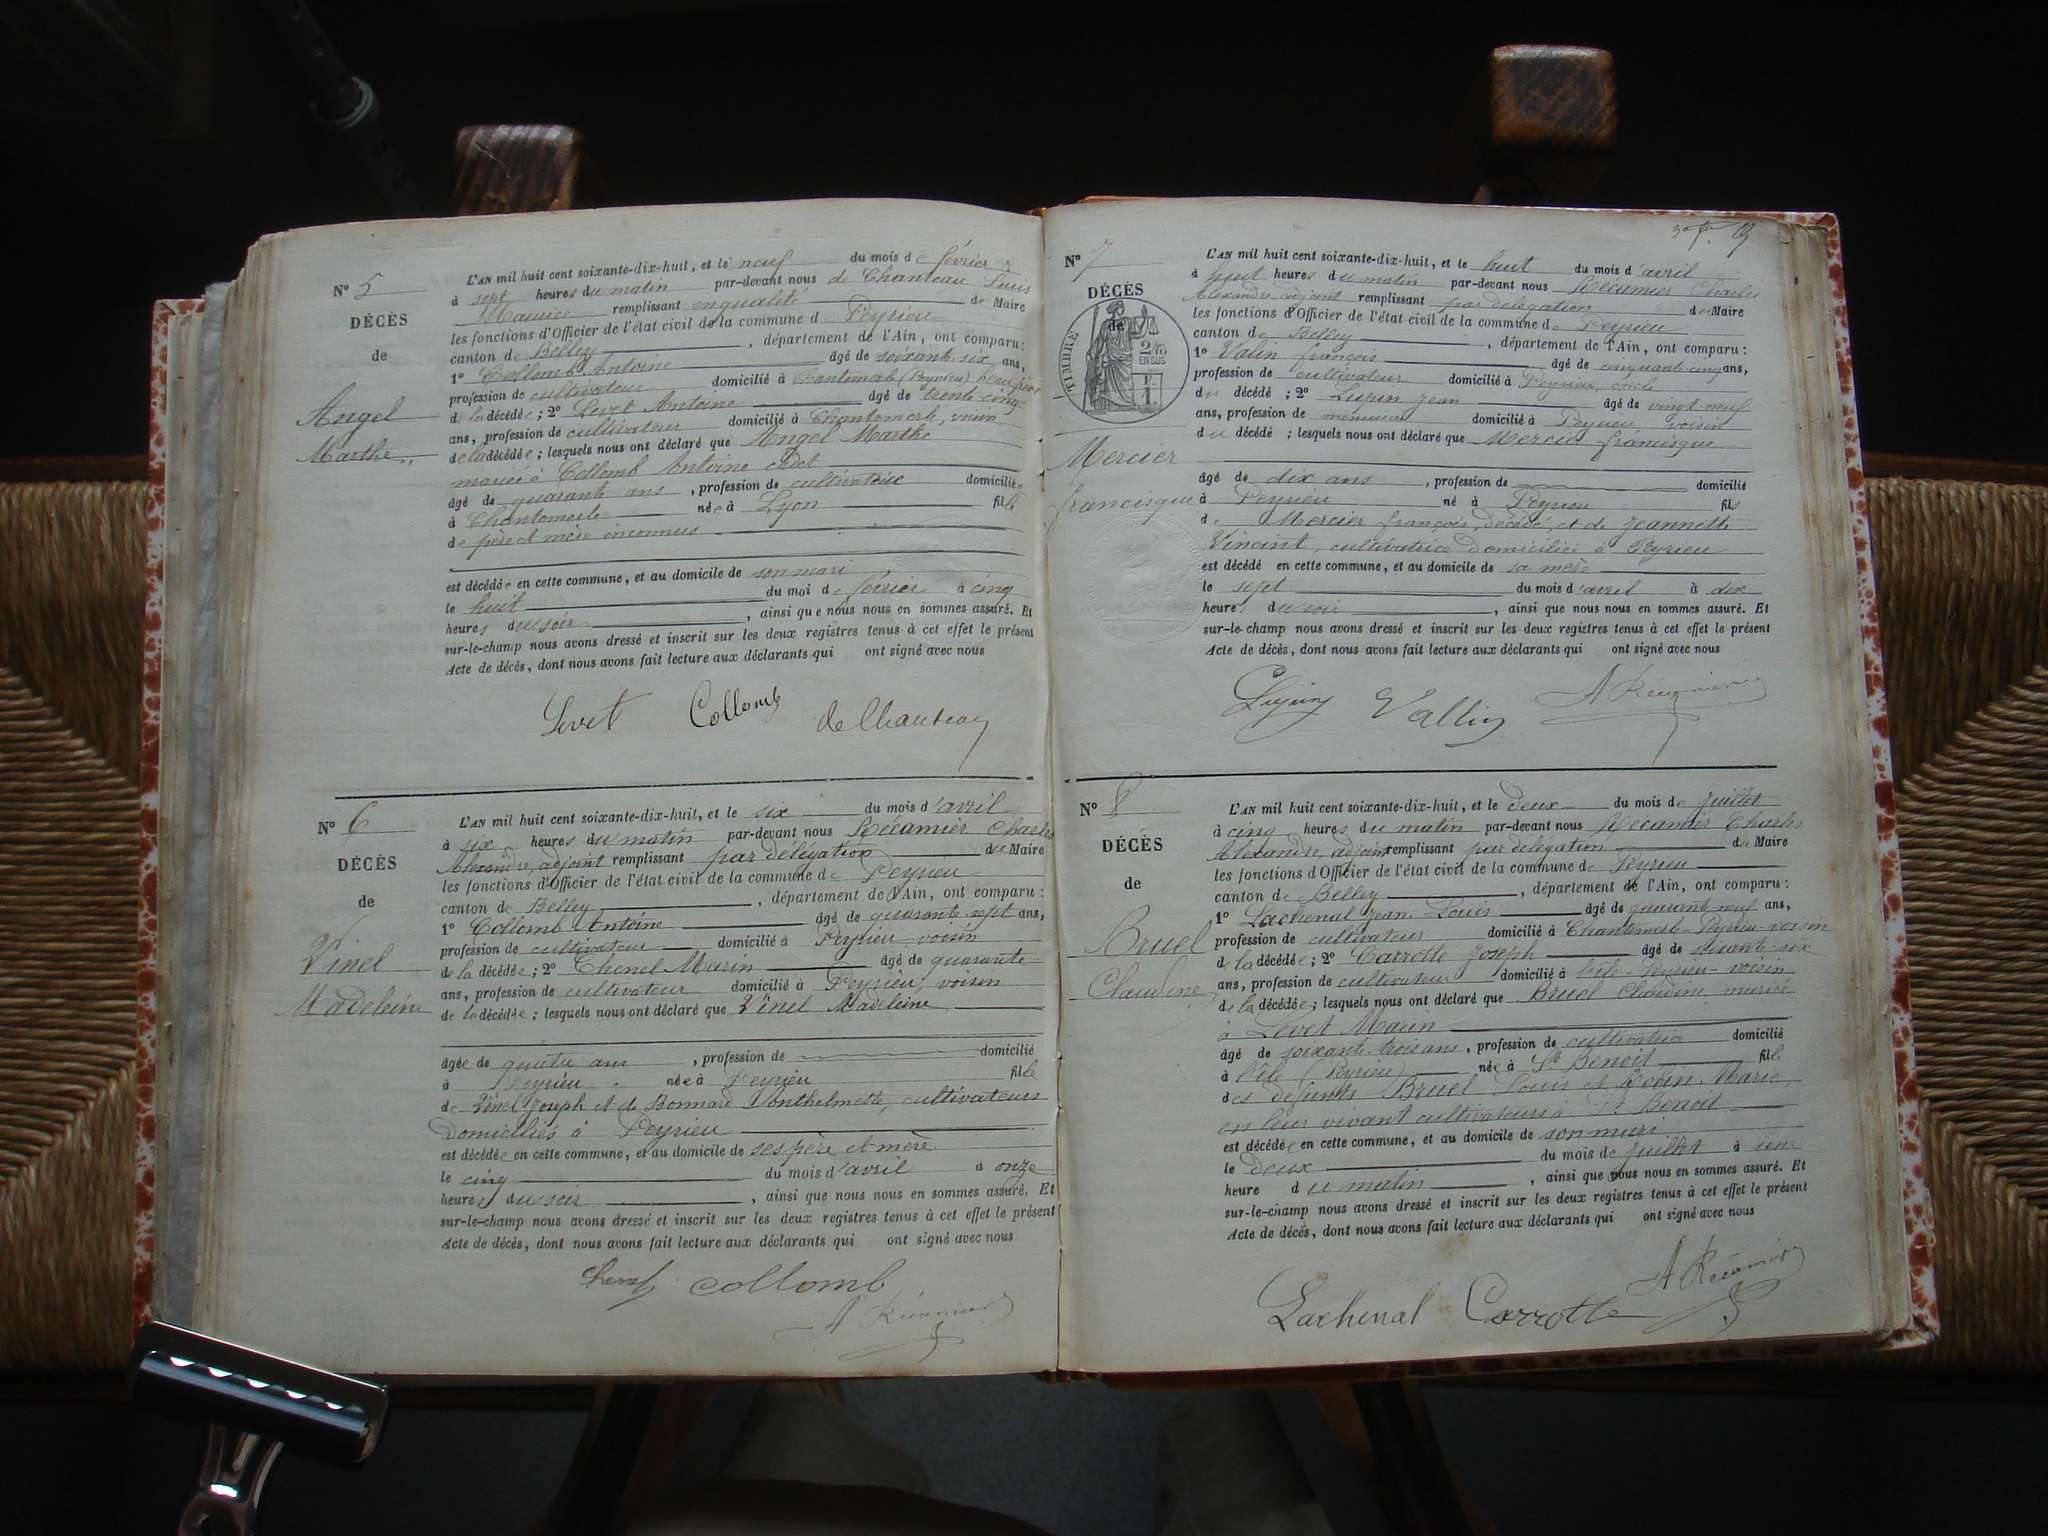 N° 5
DÉCÈS
de
Angel
Marthe
L'AN mil huit cent soixante-dix-huit, et le neuf du mois de février
à sept heures du matin par-devant nous de Chanteau Louis
Maurice remplissant en qualité de Maire
les fonctions d'Officier de l'état civil de la commune de Peyrieu
canton de Belley, département de l'Ain, ont comparu :
1° Collomb Antoine âgé de soixante-six ans,
profession de cultivateur domicilié à Chantemerle (Peyrieu) beau père
de la décédée ; 2° Levet Antoine âgé de trente cinq
ans, profession de cultivateur domicilié à Chantemerle, voisin
de la décédée ; lesquels nous ont déclaré que Angel Marthe
mariée à Collomb Antoine cadet
âgé de quarante ans, profession de cultivatrice domiciliée
à Chantemerle née à Lyon fille
de père et mère inconnus
est décédée en cette commune, et au domicile de son mari
le huit du moi de février à cinq
heures du soir, ainsi que nous nous en sommes assuré. Et
sur-le-champ nous avons dressé et inscrit sur les deux registres tenus à cet effet le présent
Acte de décès, dont nous avons fait lecture aux déclarants qui ont signé avec nous
Levet Collomb de Chanteau
N° 6
DÉCÈS
de
Vinel
Madeleine
L'AN mil huit cent soixante-dix-huit, et le six du mois d'avril
à six heures du matin par-devant nous Récamier Charles
Alexandre, adjoint remplissant par délégation du Maire
les fonctions d'Officier de l'état civil de la commune de Peyrieu
canton de Belley, département de l'Ain, ont comparu :
1° Collomb Antoine âgé de quarante-sept ans,
profession de cultivateur domicilié à Peyrieu, voisin
de la décédée ; 2° Thenel Marin âgé de quarante
ans, profession de cultivateur domicilié à Peyrieu, voisin
de la décédée ; lesquels nous ont déclaré que Vinel Madeleine
âgée de quatre ans, profession de domicilié
à Peyrieu née à Peyrieu fille
de Vinel Joseph et de Bonnard Anthelmette, cultivateurs
domiciliés à Peyrieu
est décédée en cette commune, et au domicile de ses père et mère
le cinq du mois d'avril à onze
heures du soir, ainsi que nous nous en sommes assuré. Et
sur-le-champ nous avons dressé et inscrit sur les deux registres tenus à cet effet le présent
Acte de décès, dont nous avons fait lecture aux déclarants qui ont signé avec nous
collomb
A Récamier
N° 7
DÉCÈS
de
TIMBRE
2/10
EN SUS
Mercier
francisque
L'AN mil huit cent soixante-dix-huit, et le huit du mois d'avril
à huit heures du matin par-devant nous Récamier Charles
Alexandre, adjoint remplissant par délégation du Maire
les fonctions d'Officier de l'état civil de la commune de Peyrieu
canton de Belley, département de l'Ain, ont comparu :
1° Valin françois âgé de cinquante-cinq ans,
profession de cultivateur domicilié à Peyrieu, oncle
du décédé ; 2° Lupin Jean âgé de vingt-neuf
ans, profession de menuisier domicilié à Peyrieu, voisin
du décédé ; lesquels nous ont déclaré que Mercier francisque
âgé de dix ans, profession de domicilié
à Peyrieu né à Peyrieu fils
de Mercier françois, décédé, et de Jeannette
Vincent, cultivatrice domiciliée à Peyrieu
est décédé en cette commune, et au domicile de sa mère
le sept du mois d'avril à dix
heures du soir, ainsi que nous nous en sommes assuré. Et
sur-le-champ nous avons dressé et inscrit sur les deux registres tenus à cet effet le présent
Acte de décès, dont nous avons fait lecture aux déclarants qui ont signé avec nous
Lupin Vallin A Récamier
N° 8
DÉCÈS
de
Bruel
Claudine
L'AN mil huit cent soixante-dix-huit, et le deux du mois de juillet
à cinq heures du matin par-devant nous Récamier Charles
Alexandre, adjoint remplissant par délégation du Maire
les fonctions d'Officier de l'état civil de la commune de Peyrieu
canton de Belley, département de l'Ain, ont comparu :
1° Lachenal Jean-Louis âgé de quarante-neuf ans,
profession de cultivateur domicilié à Chantemerle-Peyrieu-voisin
de la décédée ; 2° Carrotte Joseph âgé de soixante-six
ans, profession de cultivateur domicilié à l'île-Peyrieu-voisin
de la décédée ; lesquels nous ont déclaré que Bruel Claudine, mariée
à Levet Marin
âgé de soixante-trois ans, profession de cultivatrice domicilié
à l'île (Peyrieu) née à St Benoit fille
des défunts Bruel Louis et Robin Marie,
en leur vivant cultivateurs à St Benoit
est décédée en cette commune, et au domicile de son mari
le deux du mois de juillet à une
heure du matin, ainsi que nous nous en sommes assuré. Et
sur-le-champ nous avons dressé et inscrit sur les deux registres tenus à cet effet le présent
Acte de décès, dont nous avons fait lecture aux déclarants qui ont signé avec nous
Lachenal Carrotte A Récamier